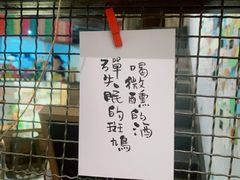 喝微醺的酒
彈失眠的斑鳩